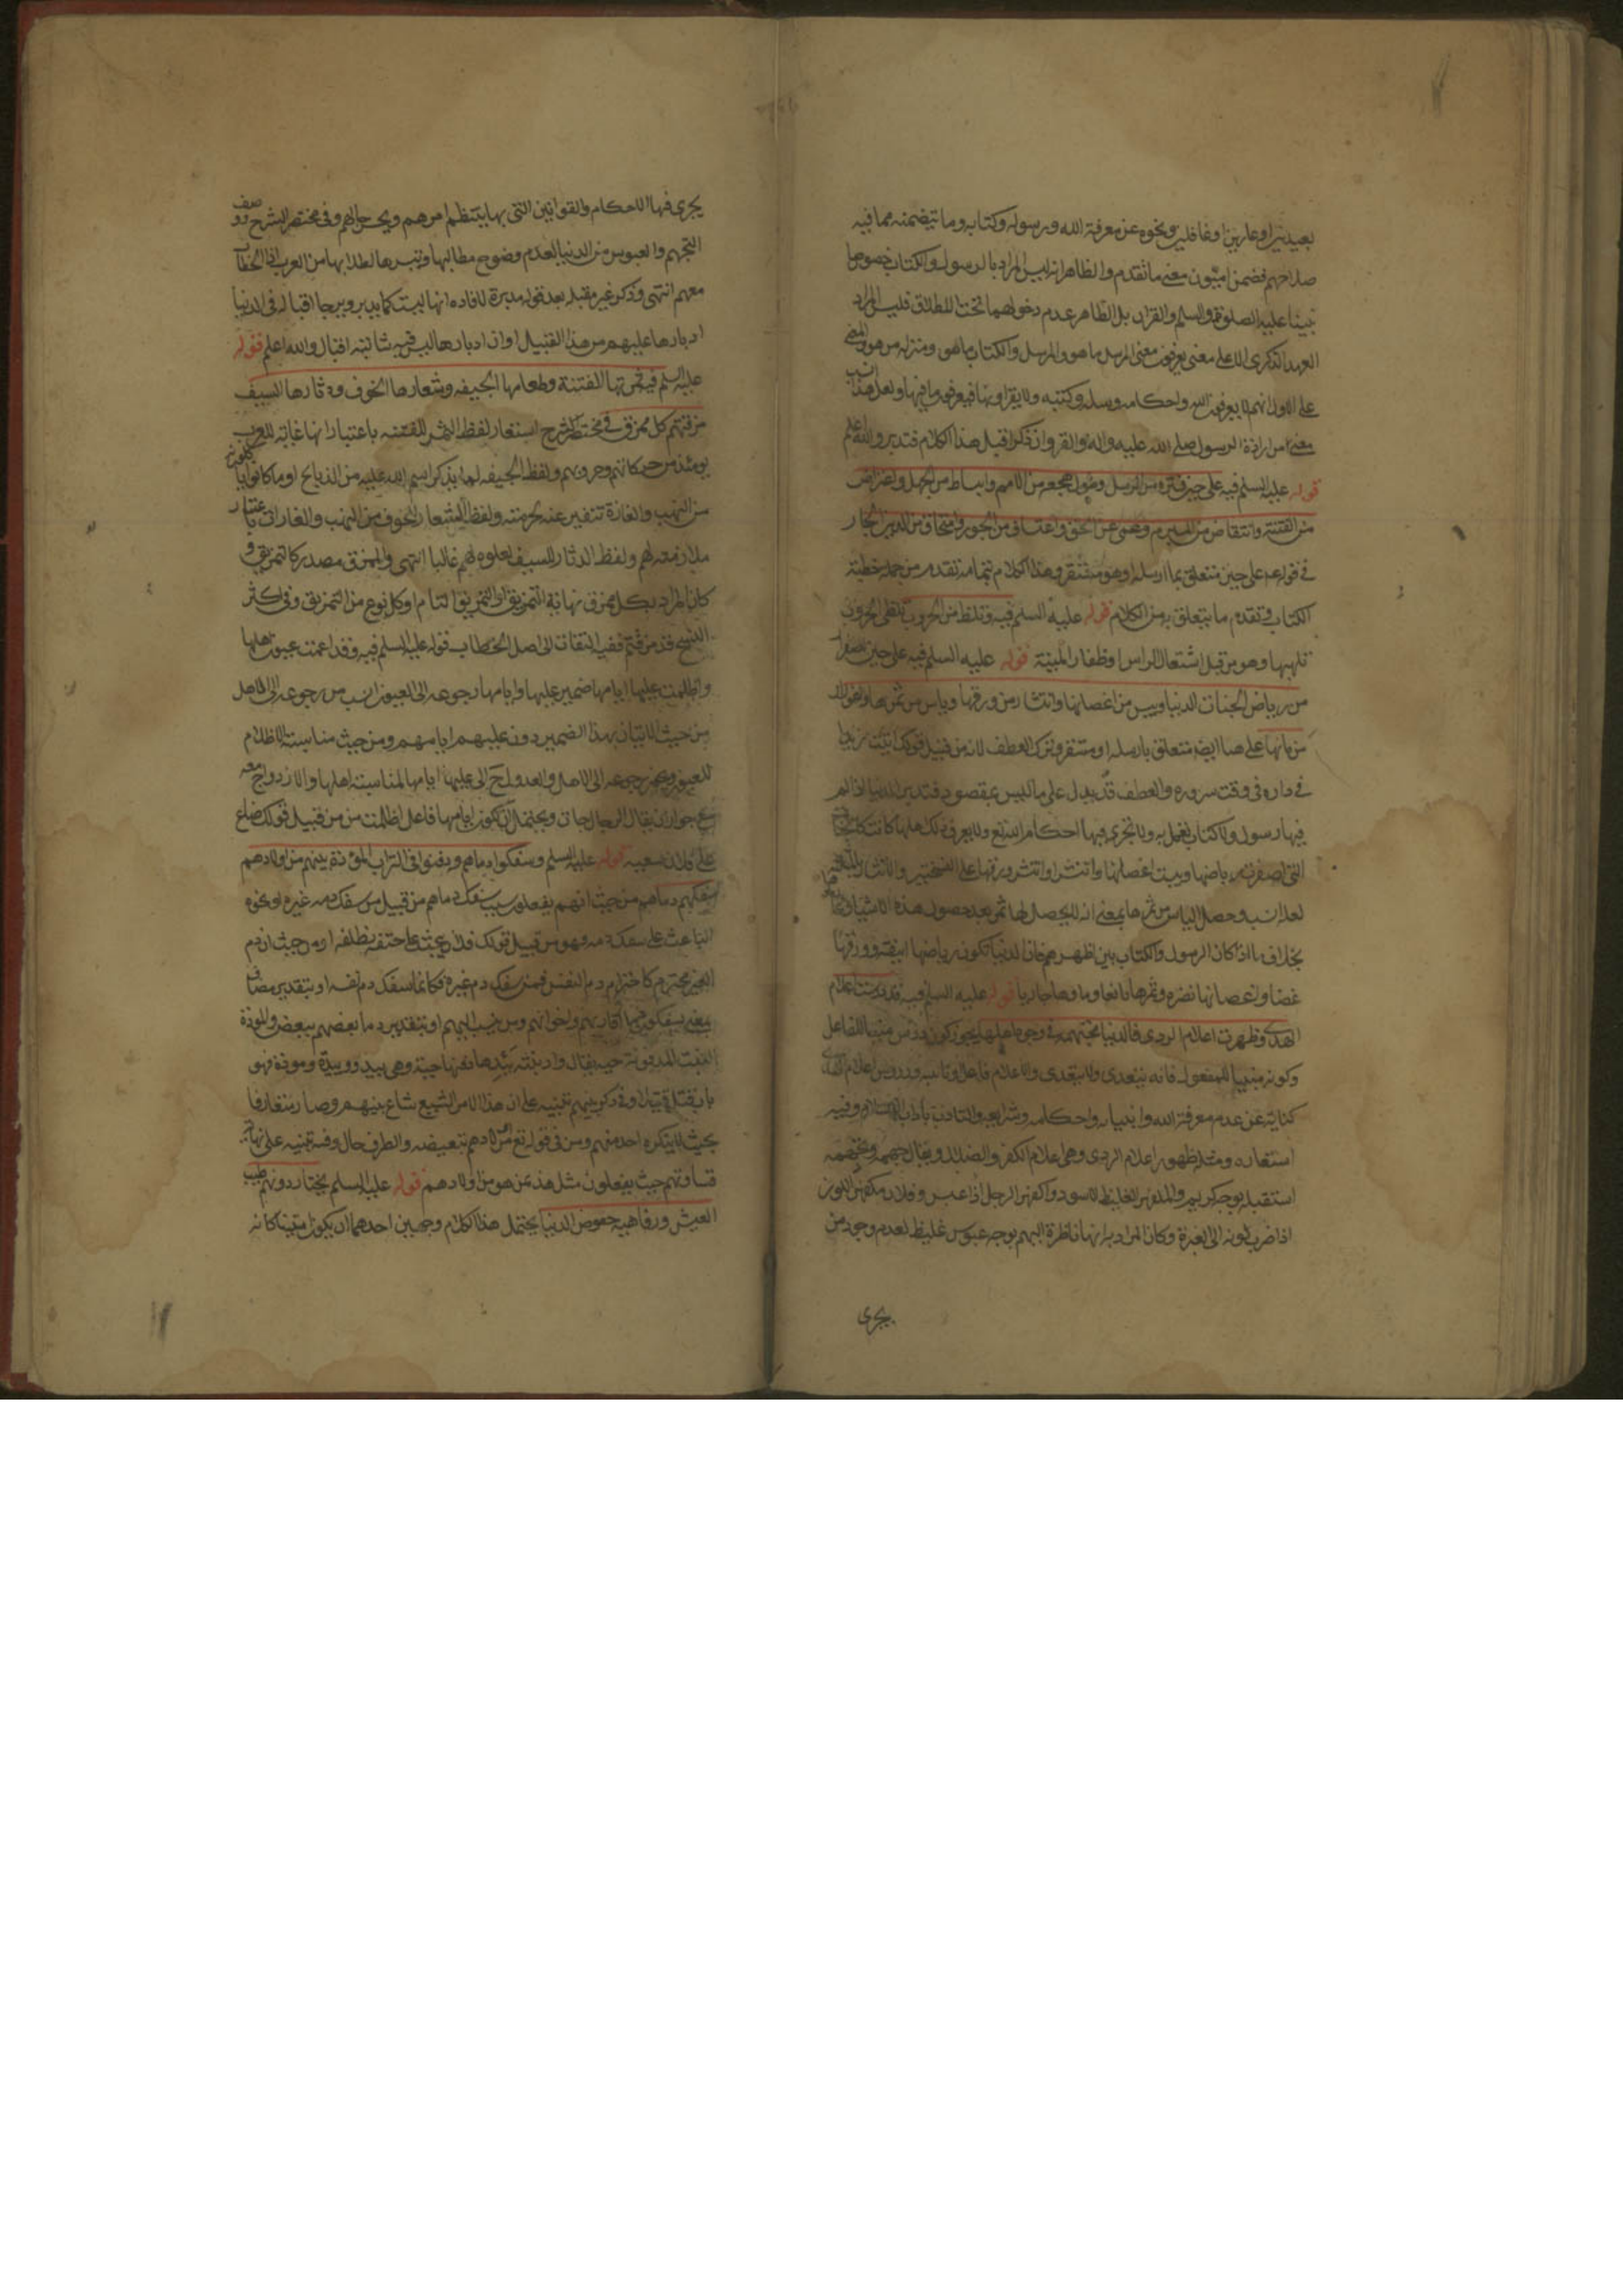 بعيدين او عارين او غافلين ونحوه عن معرفة الله ورسوله وكتابه وما تيضمنه مما فيه
صلاحهم فضمن اميّون معنى ما تقدم والظاهر انه ليس المراد بالرسول والكتاب خصوص
نبينا عليه الصلوة والسلم والقران بل الظاهر عدم دخولهما تحت الاطلاق فليس المراد
العهد الذكرى الا على معنى يعرفون معنى المرسل ما هو والمرسل والكتاب ما هو ومنزله من هو والمعنى
على الاول انهم لا يعرفون الله واحكامه ورسله وكتبه ولا يقراونها فيعرفون ما فيها ولعل هذا انسب
معنى من ارادة الرسول صلى الله عليه واله والقران وان ذكرا قبل هذا الكلام فتدبر والله اعلم
قوله عليه السلم فيه على حين فترة من الرسل وطول هجعة من الامم وانبساط من الجهل واعتراض
من الفتنة وانتقاض من المبرم وعمى عن الحق واعتساف من الجور وامتحاق من الدين الجار
في قوله على حين متعلق بما ارسله او هو مستقر وهذا الكلام بتمامه تقدم من جملة خطبة
الكتاب وتقدم ما يتعلق به من الكلام قوله عليه السلم فيه وتلظ من الحروب تلظى الحروب
تلهبها وهو من قبيل اشتعال الراس اوظفار المنية قوله عليه السلم فيه على حين اصفرار
من رياض الجنات الدنيا ويبس من اغصانها وانتشار من ورقها وياس من ثمرها واغورار
من مائها على هنا ايضا متعلق بارسله او مستقر وترك العطف لانه من قبيل قولك اتيت زيدا
في داره في وقت سروره والعطف قد يدل على ما ليس بمقصود فتدبر الدنيا اذا لم
فيها رسول ولا كتاب يعمل به ولا تجرى فيها احكام الله تع ولا يعرف ذلك اهلها كانت كالجنات
التي اصفرت رياضها ويبست اغصانها وانتشر ورقها على
لعله انسب وحصل الياس من ثمرها بمعنى انه لا يحصل لها ثمر بعد حصول هذه الاشياء
بخلاف ما اذا كان الرسول والكتاب بين اظهرهم فان الدنيا تكون رياضها انيقة وورقها
غضا واغصانها نضره وثمرها يانعا وماوها جاريا قوله عليه السلم فيه قد درست اعلام
الهدى وظهرت اعلام الردى فالدنيا متجهمة في وجوه اهلها يجوز كون درس مبنيا للفاعل
وكونه مبنيا للمفعول فانه يتعدى ولا يتعدى والاعلام فاعل او نائبه ودروس اعلام الهدى
كناية عن عدم معرفة الله وانبيائه واحكامه وشرايعه والتادب باداب الاسلام وفيه
استعاره ومثله ظهور اعلام الردى وهى اعلام الكفر والضلال ويقال جهمه وتجهمه
استقبله بوجه كريه والمكفهر الغليظ الاسود واكفهر الرجل اذا عبس وفلان مكفهر اللون
اذا ضرب لونه الى الغبرة وكان المراد به انها ناظرة اليهم بوجه عبوس غليظ لعدم وجود من
يجرى
يجرى فيها الاحكام والقوانين التى بها ينتظم امرهم ويحسن حالهم وفي مختصر الشرح وصف
التجهم والعبوس من الدنيا لعدم وضوح مطالبها وتيسرها لطلابها من العرب
معهم انتهى وذكر غير مقبلة بعد قوله مدبرة لافادة انها ليست كما يدبر ويرجا اقباله فى الدنيا
ادبارها عليهم من هذا القبيل او ان ادبارها ليس فيه شائبة اقبال والله اعلم قوله
عليه السلم فيه ثمرتها الفتنة وطعامها الجيفه وشعارها الخوف ودثارها السيف
مزقتهم كل ممزق في مختصر الشرح استعار لفظ الثمر للفتنه باعتبار انها غاية للعرب
يومئذ من حركاتهم وحروبهم ولفظ الجيفه لما لم يذكر اسم الله عليه من الذبايح او ما كانوا ياكلونه
من النهب والغارة تنفير عنه لحرمته ولفظ الشعار للخوف من النهب والغارات باعتبار
ملازمته لهم ولفظ الدثار للسيف لعلوه لهم غالبا انتهى والممزق مصدر كالتمزيق و
كان المراد بكل ممزق نهاية التمزيق او التمزيق التام او كل نوع من التمزيق وفى اكثر
النسخ قد مزقتم ففيه التفات الى اصل الخطاب قوله عليه السلم فيه وقد اعمت عيون اهلها
واظلمت عليها ايامها ضمير عليها وايامها رجوعه الى العيون انسب من رجوعه الى الاهل
من حيث الاتيان بهذا الضمير دون عليهم ايامهم ومن حيث مناسبة الاظلام
للعيون ويجوز رجوعه الى الاهل والعدول ح الى عليها ايامها لمناسبة اهلها والازدواج معه
مع جواز ان يقال الرجال جات ويحتمل ان تكون ايامها فاعل اظلمت من من قبيل قولك ضاع
على فلان سعيه قوله عليه السلم وسفكوا دماهم ودفنوا فى التراب الموؤدة بينهم من اولادهم
سفكهم دماهم من حيث انهم يفعلون سبب سفك دماهم من قبيل من سفك دم غيره او نحوه
الباعث على سفك دمه فهو من قبيل قولك فلان يبحث على حتفه بظلفه او من حيث ان دم
الغير محترم كاحترام دم النفس فمن سفك دم غيره فكانما سفك دم نفسه او بتقدير مضاف
بمعنى يسفكون دماء اقاربهم واخوانهم ومن ينسب اليهم او بتقدير دما بعضهم ببعض والموؤدة
البنت المدفونة حية يقال واد بنته يئدها دفنها حية وهى وئيد ووئيدة وموؤدة فهو
بان يقتل قتيلا وفى ذكر بينهم تنبيه على ان هذا الامر الشنيع شاع بينهم وصار متعارفا
بحيث لا ينكره احد منهم ومن فى قوله تع من اولادهم تبعيضية والظرف حال وفيه تنبيه على نهاية
قساوتهم حيث يفعلون مثل هذا بمن هو من اولادهم قوله عليه السلم يختار دونهم طيب
العيش ورفاهية خفوض الدنيا يحتمل هذا الكلام وجهين احدهما ان يكون مبينا كانه